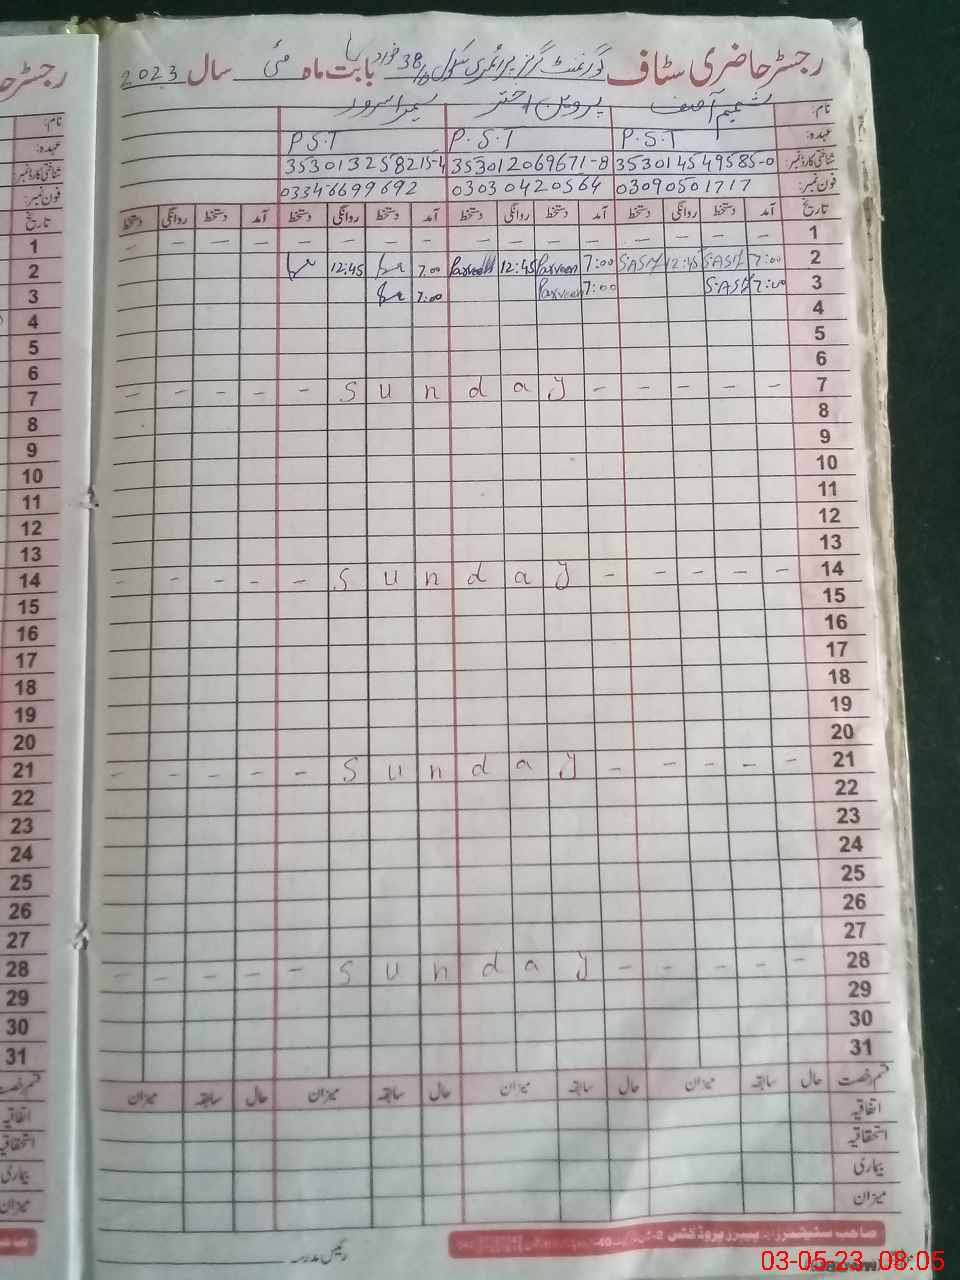 رجسٹر حاضری سٹاف گورنمنٹ گرلز پرائمری سکول 38 بابت ماہ مئی سال 2023
نام: شمیم آصف پروین اختر سمیرا سرور
عہدہ: P.S.T P.S.T P.S.T
شناختی کارڈ نمبر: 35301 4549585-0 35301 2069671-8 35301 3258215-4
فون نمبر: 03090501717 03030420564 03346699692
تاریخ آمد دستخط روانگی دستخط آمد دستخط روانگی دستخط آمد دستخط روانگی دستخط آمد دستخط روانگی دستخط
1 – – – – – – – – – – – –
2 7:00 12:45 7:00 Parveen 12:45 Parveen 7:00 12:45
3 7:00 7:00 Parveen 7:00
4
5
6
7 – – – – – Sunday – – – – –
8
9
10
11
12
13
14 – – – – – Sunday – – – – –
15
16
17
18
19
20
21 – – – – – Sunday – – – – –
22
23
24
25
26
27
28 – – – – – Sunday – – – – –
29
30
31
قسم رخصت حال سابقہ میزان حال سابقہ میزان حال سابقہ میزان
اتفاقیہ
استحقاقیہ
بیماری
میزان
رئیس مدرسہ
03-05-23 08:05